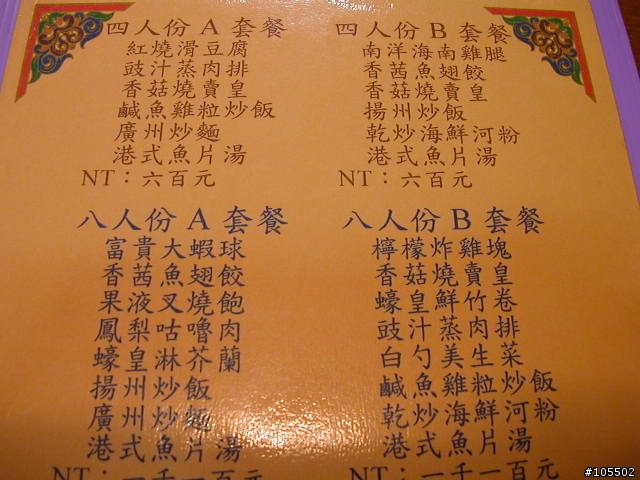 四人份 A 套餐
紅燒滑豆腐
豉汁蒸肉排
香菇燒賣皇
鹹魚雞粒炒飯
廣州炒麵
港式魚片湯
NT：六百元
四人份 B 套餐
南洋海南雞腿
香茜魚翅餃
香菇燒賣皇
揚州炒飯
乾炒海鮮河粉
港式魚片湯
NT：六百元
八人份 A 套餐
富貴大蝦球
香茜魚翅餃
果液叉燒飽
鳳梨咕嚕肉
蠔皇淋芥蘭
揚州炒飯
廣州炒麵
港式魚片湯
NT：一千一百元
八人份 B 套餐
檸檬炸雞塊
香菇燒賣皇
蠔皇鮮竹卷
豉汁蒸肉排
白勺美生菜
鹹魚雞粒炒飯
乾炒海鮮河粉
港式魚片湯
NT：一千一百元
#105502